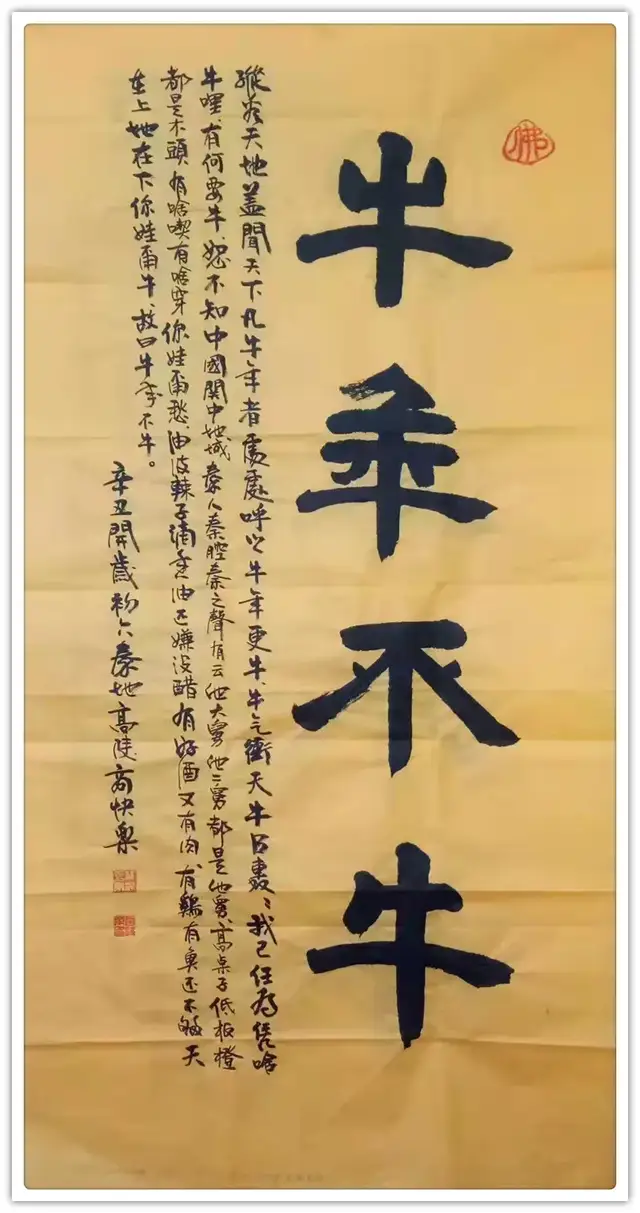 佛
牛年不牛
縱觀天地蓋聞天下凡牛年者處處呼以牛年更牛、牛气衝天牛氣轟轟我已任為凭啥
牛哩、有何要牛、恕不知中國関中地域秦人秦腔秦之聲有云他大舅他二舅都是他舅、高桌子低板櫈
都是木頭、有啥喫有啥穿你娃甭愁、油泼辣子满是油还嫌没醋有好酒又有肉、有鷄有魚还不够天
在上她在下你娃甭牛、故曰牛年不牛。
辛丑開歲初六秦地高陵商快樂